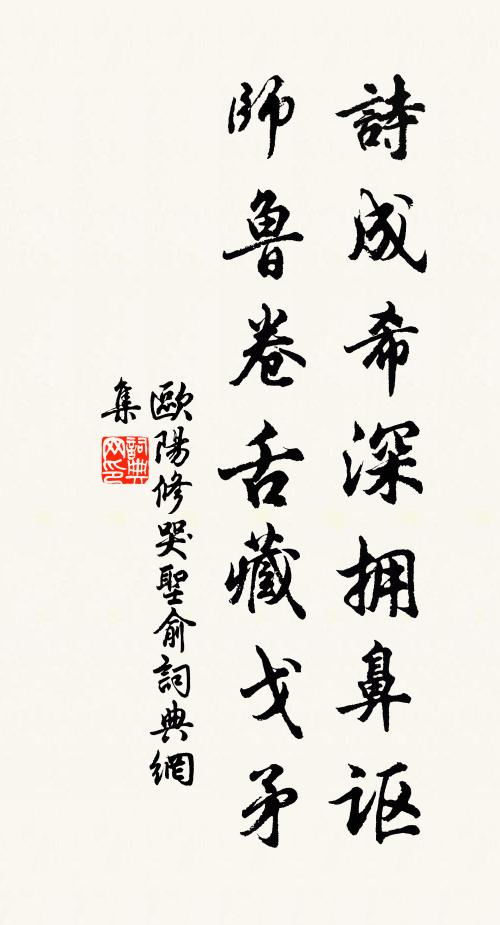 詩成希深拥鼻讴
師魯卷舌藏戈矛
歐陽修哭聖俞詞典網
集
詞典網印